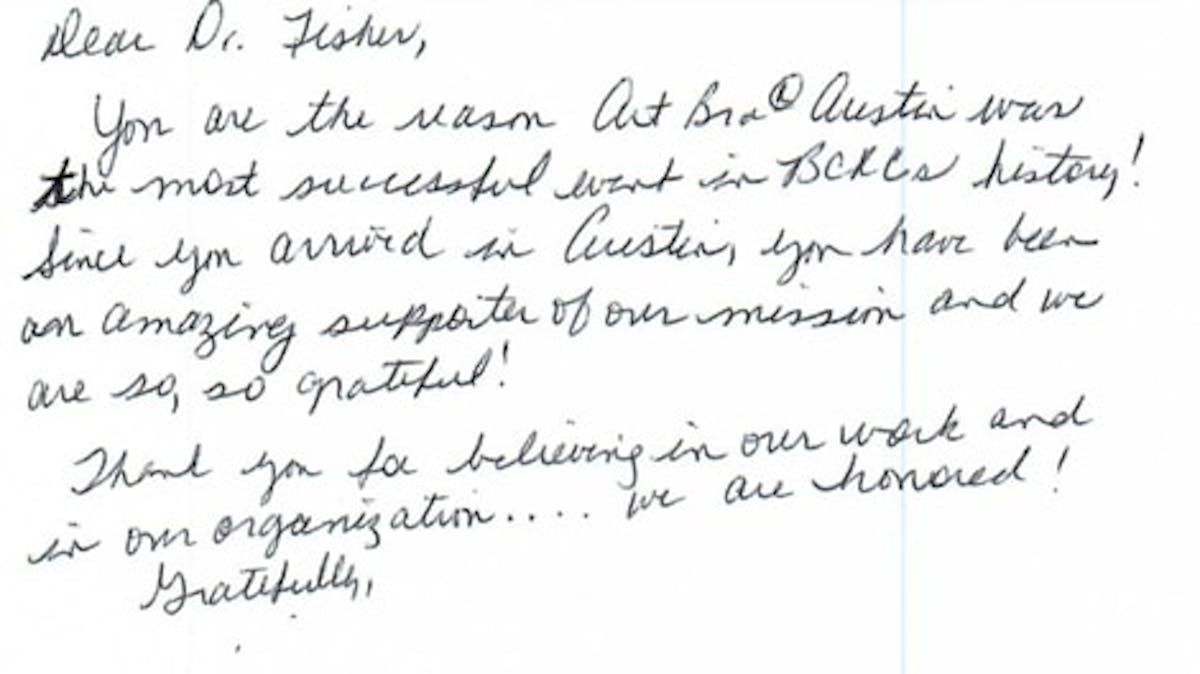 Dear Dr. Fisher,
You are the reason Art Bra® Austin was
the most successful event in BCRCs history!
Since you arrived in Austin, you have been
an amazing supporter of our mission and we
are so, so grateful!
Thank you for believing in our work and
in our organization.... we are honored!
Gratefully,